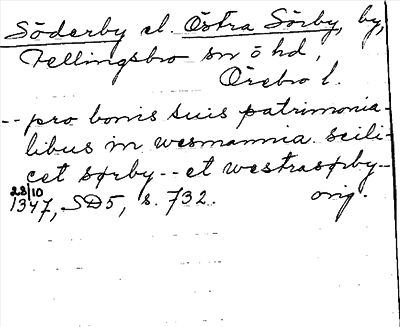 Söderby el. Östra Sörby, by,
Fellingsbro sn o hd,
Örebro l.
-- pro bonis suis patrimonia-
libus in wesmannia scili-
cet sørby -- et westrasørby--
28/10
1347, SD5, s. 732. orig.